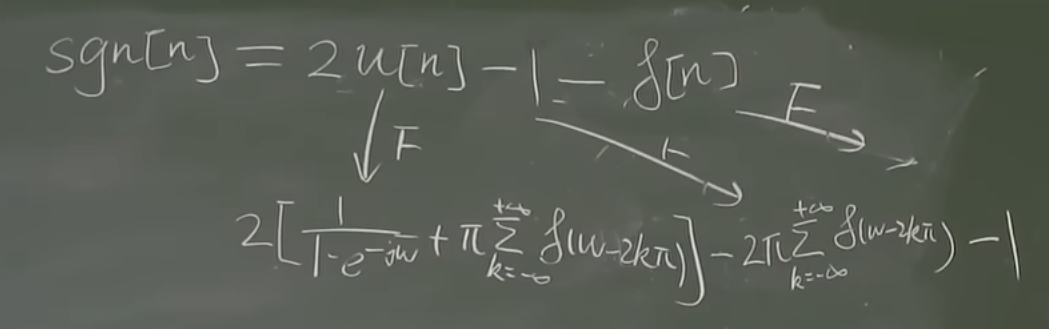 sgn[n] = 2u[n] - 1 - δ[n]
F F F
2[1/(1-e^{-jω} + π∑_{k=-∞}^{+∞} δ(ω-2kπ)] - 2π∑_{k=-∞}^{+∞} δ(ω-2kπ) - 1